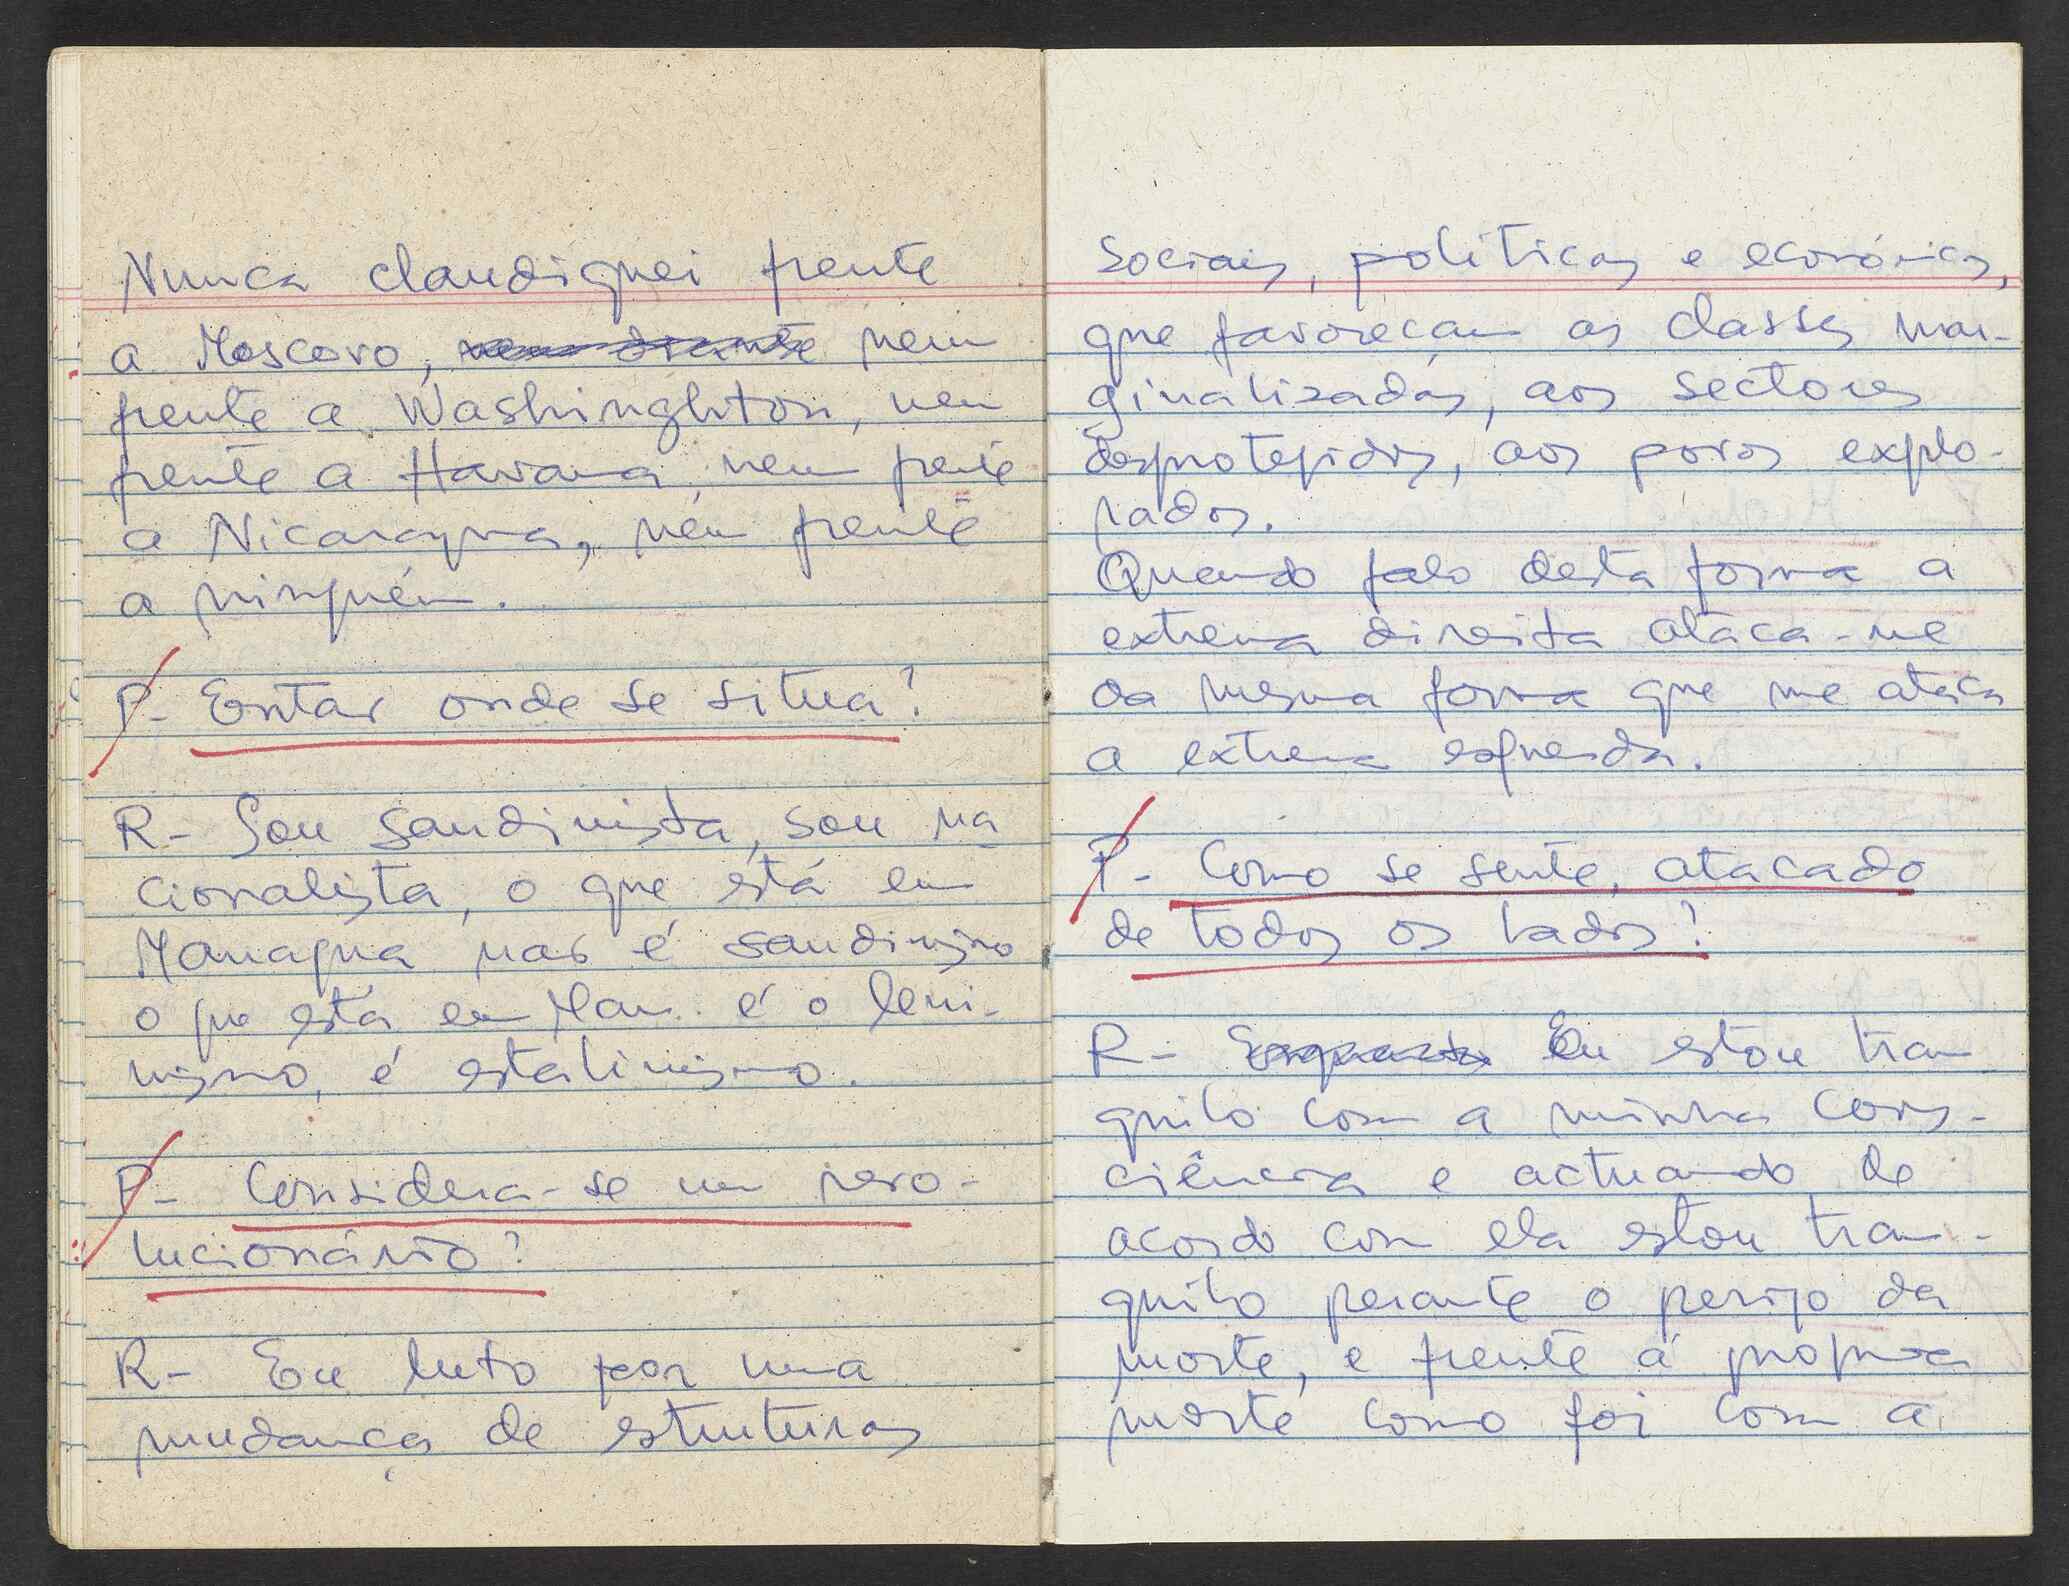 Nunca claudiquei frente
a Moscovo, nem diante nem
frente a Washinghton, nem
frente a Havana, nem frente
a Nicaragua, nem frente
a ninguém.
P- Entao onde se situa?
R- Sou sandinista, sou na
cionalista, o que está em
Managua nao é sandinismo
o que está em Man. é o leni-
nismo, é estalinismo.
P- Considera-se um revo-
lucionário?
R- Eu luto por uma
mudança de estruturas
sociais, politicas e económicas,
que favoreçam as classes mar-
ginalizadas, aos sectores
desprotegidos, aos povos explo-
rados.
Quando falo desta forma a
extrema direita ataca-me
da mesma forma que me ataca
a extrema esquerda.
P- Como se sente, atacado
de todos os lados?
R- Enquanto Eu estou tran
quilo com a minha cons-
ciência e actuando de
acordo com ela estou tran-
quilo perante o perigo da
morte, e frente á propria
morte como foi com a